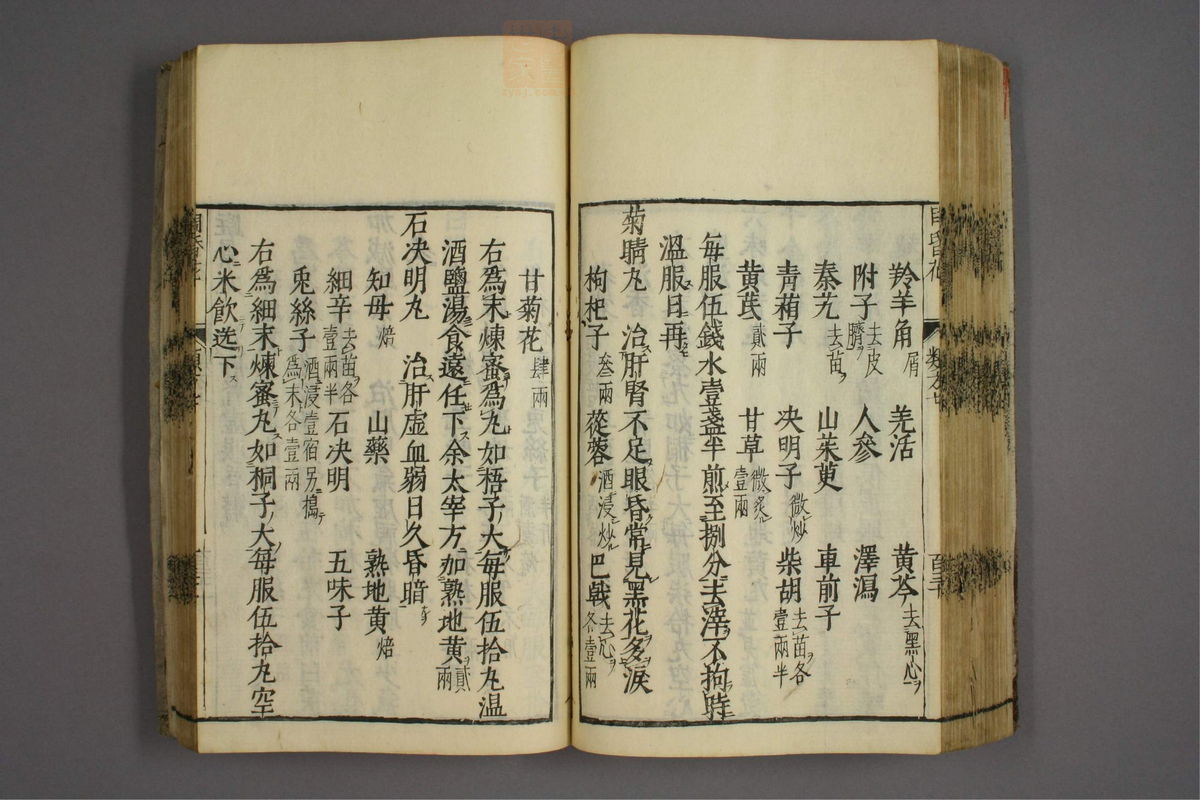 羚羊角屑　羌活　黄芩去黑心ヲ
附子去皮臍ヲ　人參　澤瀉
秦艽去苗ヲ　山茱萸　車前子
青葙子　决明子微炒　柴胡去苗ヲ各壹兩半
黄芪貳兩　甘草微炙壹兩
每服伍錢水壹盞半煎至捌分去滓不拘時
溫服日再
菊睛丸　治肝腎不足眼昏常見黑花多淚
枸杞子叄兩　蓯蓉酒浸炒　巴戟去心ヲ各壹兩
甘菊花肆兩
右爲末煉蜜爲丸如梧子大每服伍拾丸温
酒鹽湯食遠任下余太宰方加熟地黄貳兩
石决明丸　治肝虚血弱日久昏暗
知母焙　山藥　熟地黄焙
細辛去苗ヲ各壹兩半　石决明　五味子
兎絲子酒浸壹宿另擣爲末各壹兩
右爲細末煉蜜丸如桐子大每服伍拾丸空
心米飲送下